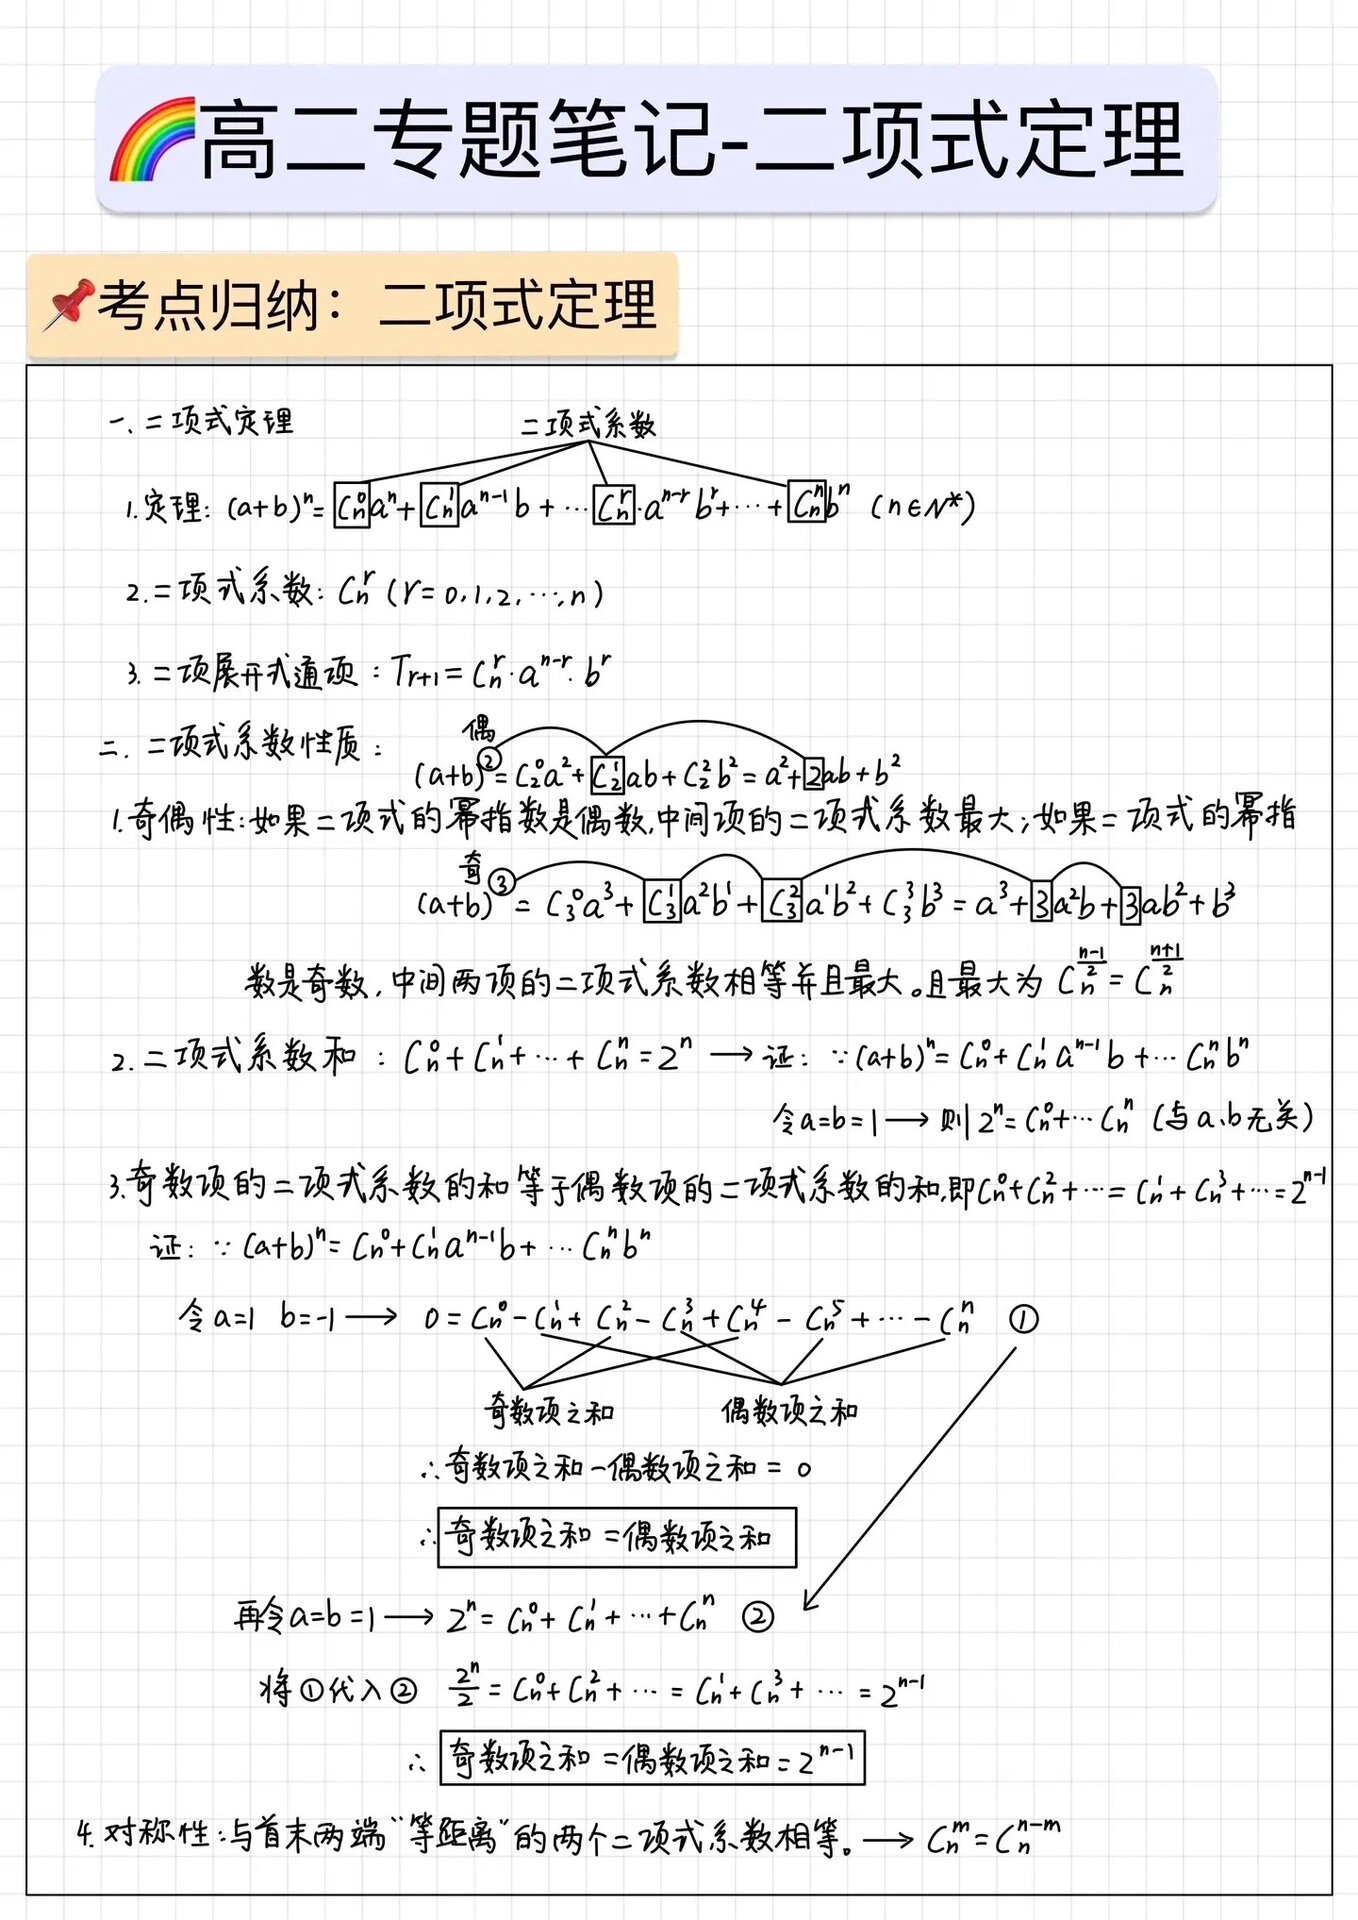 🌈高二专题笔记-二项式定理
📌考点归纳：二项式定理
一、二项式定理
二项式系数
1.定理：(a+b)ⁿ= Cₙ⁰aⁿ+Cₙ¹aⁿ⁻¹b+…Cₙʳ·aⁿ⁻ʳbʳ+…+Cₙⁿbⁿ (n∈N*)
2.二项式系数：Cₙʳ (r=0,1,2,…,n)
3.二项展开式通项：Tᵣ₊₁=Cₙʳ·aⁿ⁻ʳ·bʳ
二、二项式系数性质：
偶
(a+b)②=C₂⁰a²+C₂¹ab+C₂²b²=a²+2ab+b²
1.奇偶性：如果二项式的幂指数是偶数,中间项的二项式系数最大；如果二项式的幂指
奇
(a+b)③=C₃⁰a³+C₃¹a²b¹+C₃²a¹b²+C₃³b³=a³+3a²b+3ab²+b³
数是奇数,中间两项的二项式系数相等并且最大。且最大为 Cₙ^((n-1)/2)=Cₙ^((n+1)/2)
2.二项式系数和：Cₙ⁰+Cₙ¹+…+Cₙⁿ=2ⁿ→证：∵(a+b)ⁿ=Cₙ⁰+Cₙ¹aⁿ⁻¹b+…Cₙⁿbⁿ
令a=b=1→则2ⁿ=Cₙ⁰+…Cₙⁿ (与a、b无关)
3.奇数项的二项式系数的和等于偶数项的二项式系数的和,即Cₙ⁰+Cₙ²+…=Cₙ¹+Cₙ³+…=2ⁿ⁻¹
证：∵(a+b)ⁿ=Cₙ⁰+Cₙ¹aⁿ⁻¹b+…Cₙⁿbⁿ
令a=1 b=-1→ 0=Cₙ⁰-Cₙ¹+Cₙ²-Cₙ³+Cₙ⁴-Cₙ⁵+…-Cₙⁿ ①
奇数项之和 偶数项之和
∴奇数项之和-偶数项之和=0
∴奇数项之和=偶数项之和
再令a=b=1→2ⁿ=Cₙ⁰+Cₙ¹+…+Cₙⁿ ②
将①代入② 2ⁿ/2=Cₙ⁰+Cₙ²+…=Cₙ¹+Cₙ³+…=2ⁿ⁻¹
∴ 奇数项之和=偶数项之和=2ⁿ⁻¹
4.对称性：与首末两端“等距离”的两个二项式系数相等。→Cₙᵐ=Cₙⁿ⁻ᵐ